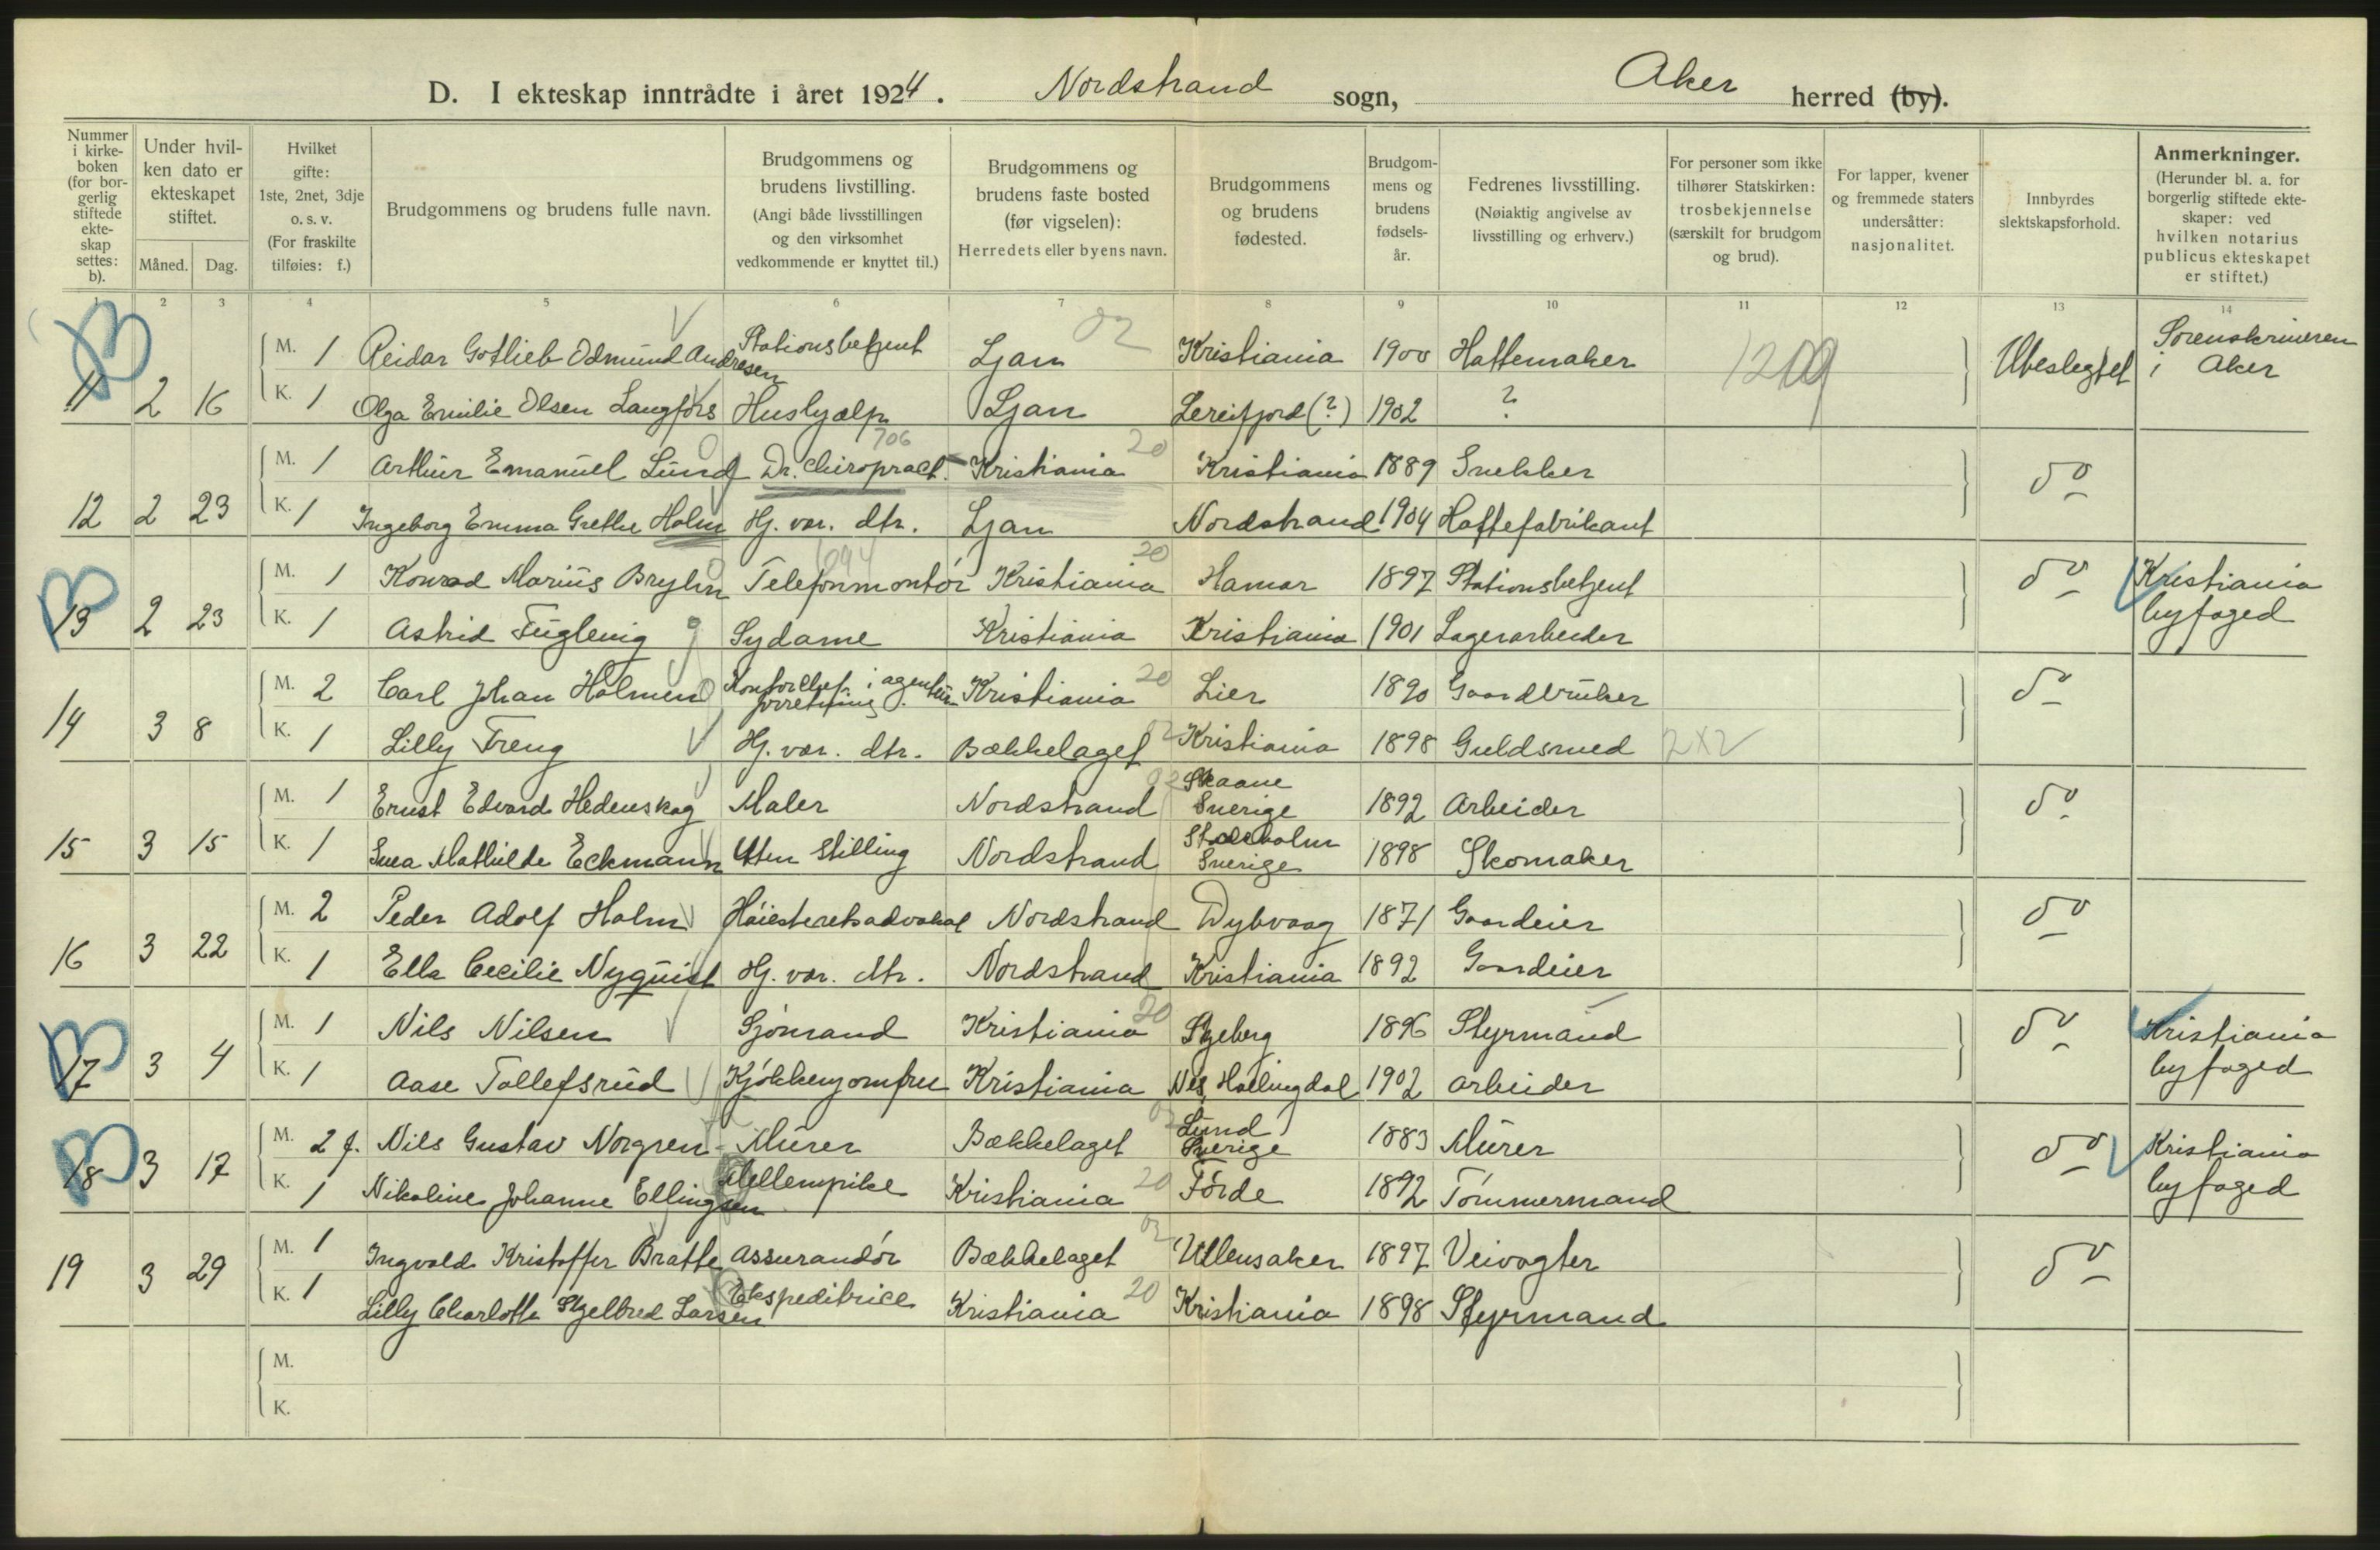 D. I ekteskap inntrådte i året 1924. Nordstrand sogn, Aker herred (by).
Nummer i kirkeboken (for borgerlig stiftede ekteskap settes: b).
Under hvilken dato er ekteskapet stiftet.
Måned. Dag.
Hvilket gifte: 1ste, 2net, 3dje o. s. v. (For fraskilte tilføies: f.)
Brudgommens og brudens fulle navn.
Brudgommens og brudens livstilling. (Angi både livsstillingen og den virksomhet vedkommende er knyttet til.)
Brudgommens og brudens faste bosted (før vigselen): Herredets eller byens navn.
Brudgommens og brudens fødested.
Brudgommens og brudens fødselsår.
Fedrenes livsstilling. (Nøiaktig angivelse av livsstilling og erhverv.)
For personer som ikke tilhører Statskirken: trosbekjennelse (særskilt for brudgom og brud).
For lapper, kvener og fremmede staters undersåtter: nasjonalitet.
Innbyrdes slektskapsforhold.
Anmerkninger. (Herunder bl. a. for borgerlig stiftede ekteskaper: ved hvilken notarius publicus ekteskapet er stiftet.)
1 2 3 4 5 6 7 8 9 10 11 12 13 14
B 11 2 16 M. 1 Reidar Gotlieb Odmund Andresen Stationsbetjent Ljan 02 Kristiania 1900 Hattemaker 1209 Ubeslegtet Sorenskriveren i Aker
K. 1 Olga Emilie Olsen Langfors Hushjælp Ljan Lereifjord (?) 1902 ?
12 2 23 M. 1 Arthur Emanuel Lund Dr. Chiropract. 706 Kristiania 20 Kristiania 1889 Snekker do
K. 1 Ingeborg Emma Grethe Holm Hj. vær. dtr. Ljan Nordstrand 1904 Hattefabrikant
B 13 2 23 M. 1 Konrad Marius Brylin Telefonmontör 1094 Kristiania 20 Hamar 1897 Stationsbetjent do Kristiania byfoged
K. 1 Astrid Fuglevig Sydame Kristiania Kristiania 1901 Lagerarbeider
14 3 8 M. 2 Carl Johan Holmen Kontorchef i agentur forretning Kristiania 20 Lier 1890 Gaardbruker do
K. 1 Lilly Freng Hj. vær. dtr. Bækkelaget 02 Kristiania 1898 Guldsmed 2x2
15 3 15 M. 1 Ernst Edvard Hedenskog Maler Nordstrand 02 Skaane Sverige 1892 Arbeider do
K. 1 Svea Mathilde Eckmann Uten Stilling Nordstrand Stockholm Sverige 1898 Skomaker
16 3 22 M. 2 Peder Adolf Holm Höiesteretsadvokat Nordstrand Dybvaag 1871 Gaardeier do
K. 1 Ella Cecilie Nyquist Hj. vær. dtr. Nordstrand Kristiania 1892 Gaardeier
B 17 3 4 M. 1 Nils Nilsen Sjömand Kristiania 20 Skjeberg 1896 Styrmand do Kristiania byfoged
K. 1 Aase Tollefsrud Kjökkenjomfru Kristiania Nes, Hallingdal 1902 Arbeider
B 18 3 17 M. 2 f. Nils Gustav Norgren Murer Bækkelaget 02 Lund Sverige 1883 Murer do Kristiania byfoged
K. 1 Nikoline Johanne Ellingsen Mellempike Kristiania 20 Förde 1892 Tömmermand
19 3 29 M. 1 Ingvald Kristoffer Bratte Assurandör Bækkelaget 02 Ullensaker 1897 Veivogter do
K. 1 Lilly Charlotte Skjelbred Larsen Ekspeditrice Kristiania 20 Kristiania 1898 Styrmand
M.
K.